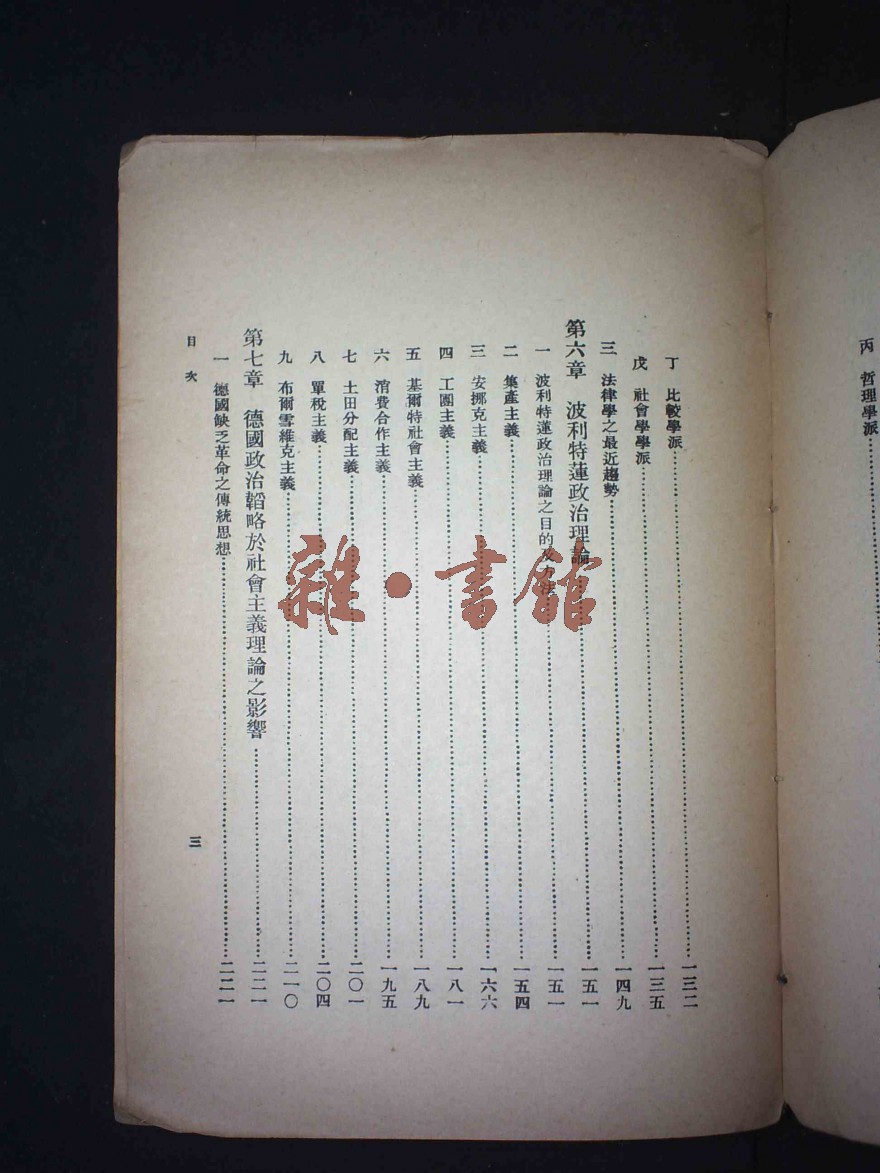 丙 哲理學派
丁 比較學派……一三二
戊 社會學學派……一三五
三 法律學之最近趨勢……一四九
第六章 波利特蓮政治理論……一五一
一 波利特蓮政治理論之目的及……一五一
二 集產主義……一五四
三 安挪克主義……一六六
四 工團主義……一八一
五 基爾特社會主義……一八九
六 消費合作主義……一九五
七 土田分配主義……二〇一
八 單稅主義……二〇四
九 布爾雪維克主義……二一〇
第七章 德國政治韜略於社會主義理論之影響……二二一
一 德國缺乏革命之傳統思想……二二一
目次
三
雜·書館